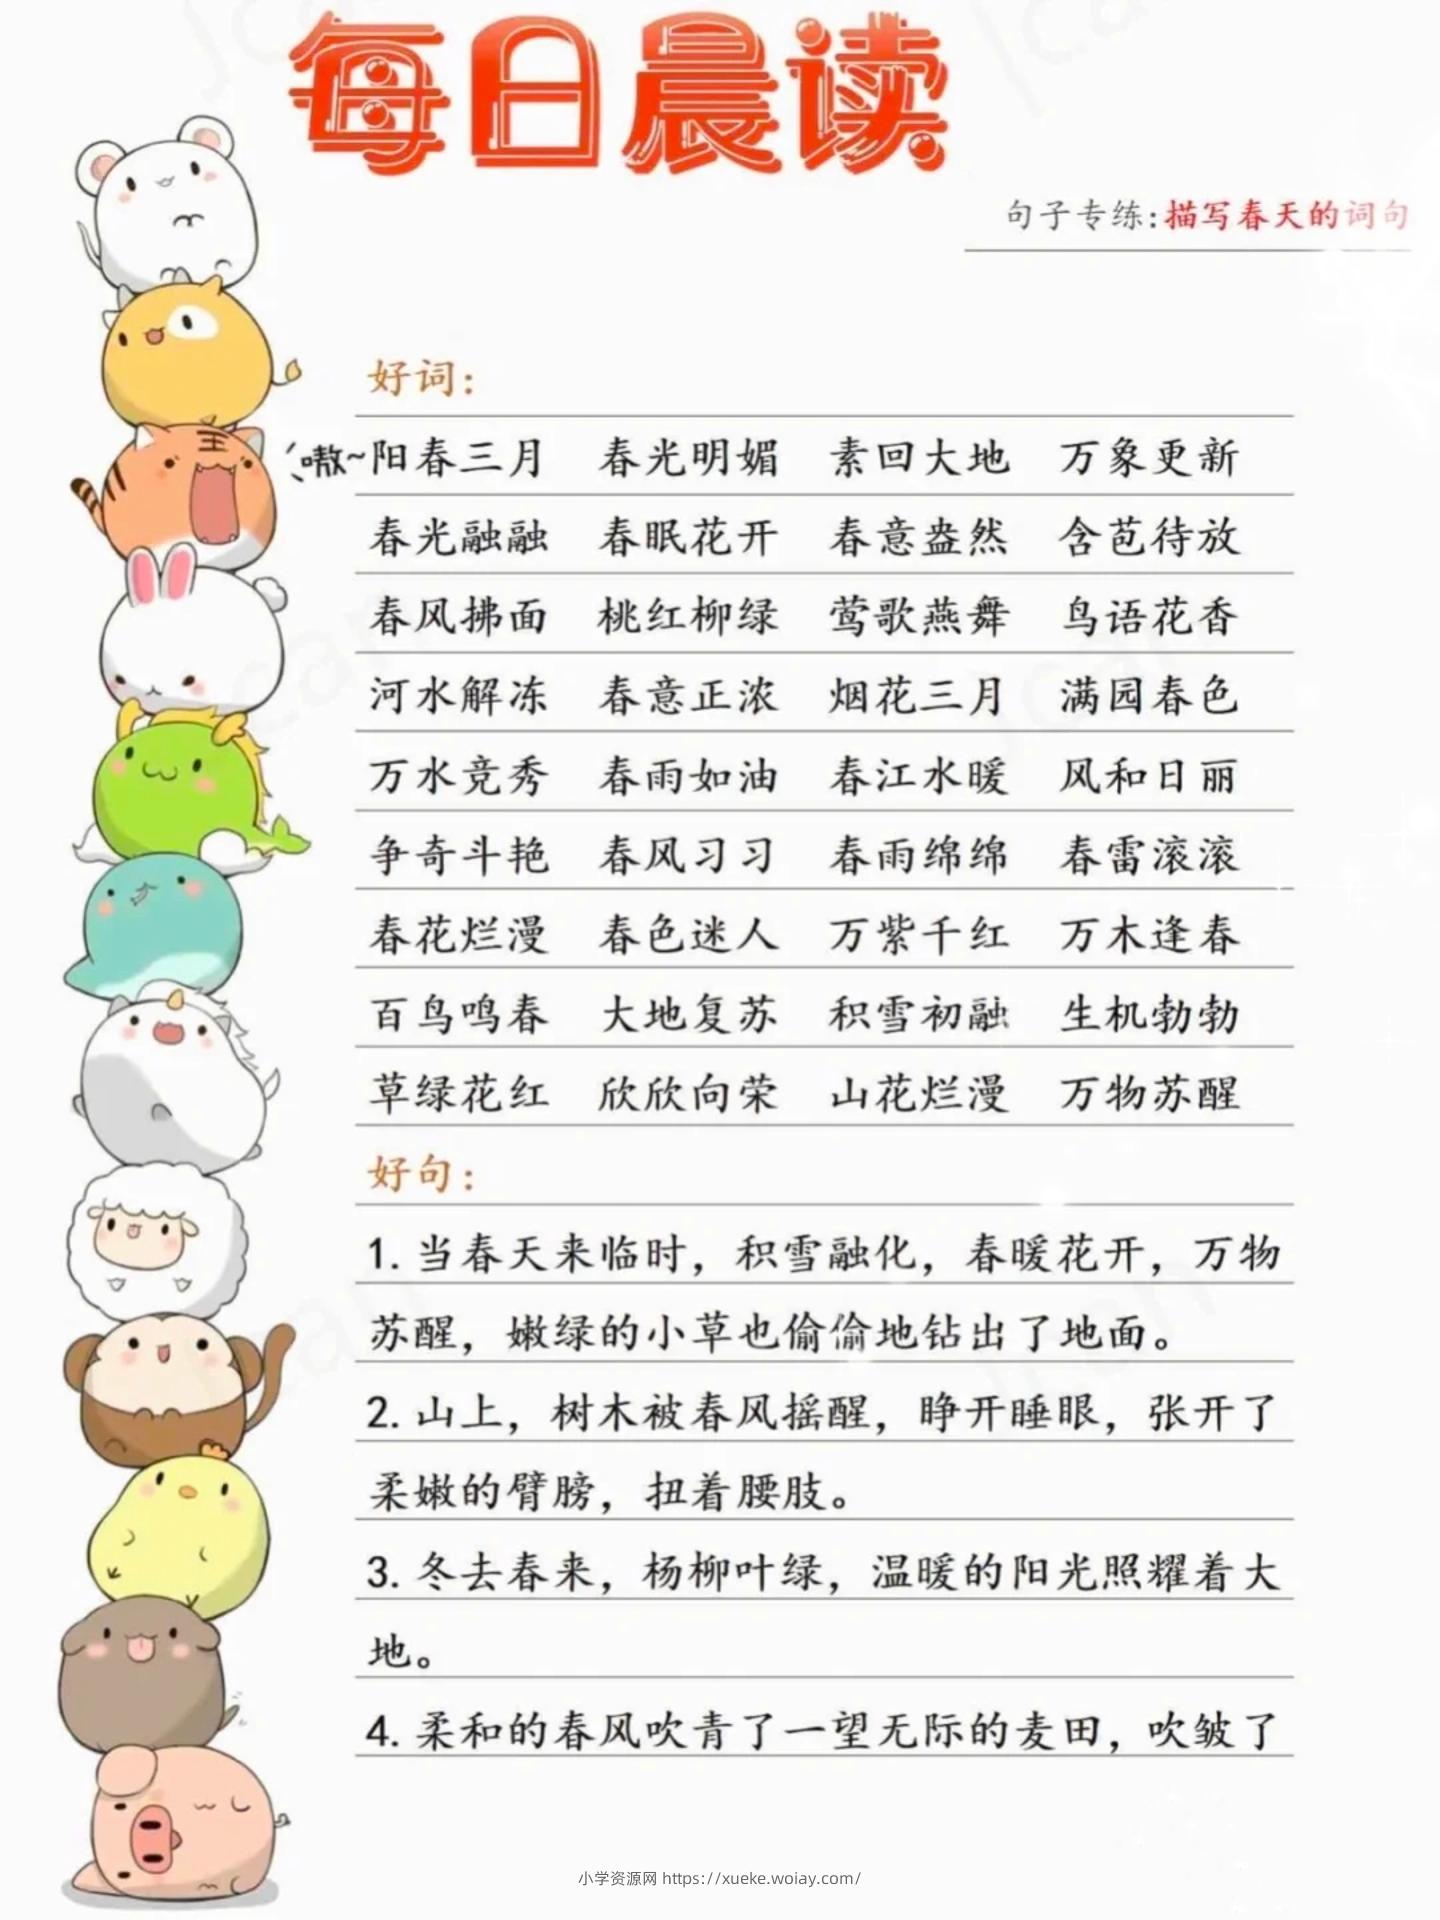 每日晨读
句子专练:描写春天的词句
好词:
嗷~
王
阳春三月 春光明媚 素回大地 万象更新
春光融融 春眠花开 春意盎然 含苞待放
春风拂面 桃红柳绿 莺歌燕舞 鸟语花香
河水解冻 春意正浓 烟花三月 满园春色
万水竞秀 春雨如油 春江水暖 风和日丽
争奇斗艳 春风习习 春雨绵绵 春雷滚滚
春花烂漫 春色迷人 万紫千红 万木逢春
百鸟鸣春 大地复苏 积雪初融 生机勃勃
草绿花红 欣欣向荣 山花烂漫 万物苏醒
好句:
1. 当春天来临时，积雪融化，春暖花开，万物
苏醒，嫩绿的小草也偷偷地钻出了地面。
2. 山上，树木被春风摇醒，睁开睡眼，张开了
柔嫩的臂膀，扭着腰肢。
3. 冬去春来，杨柳叶绿，温暖的阳光照耀着大
地。
4. 柔和的春风吹青了一望无际的麦田，吹皱了
小学资源网 https://xueke.woiay.com/